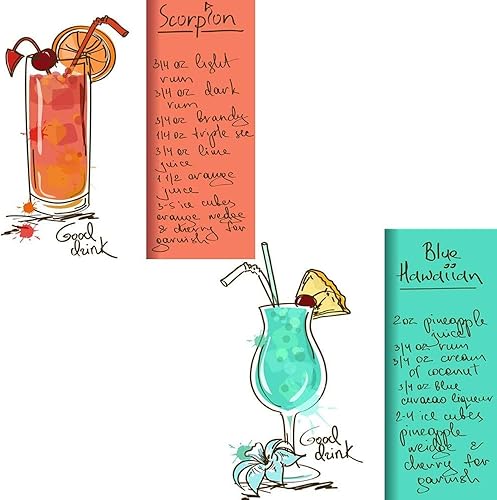 Scorpion
3/4 oz light
rum
3/4 oz dark
rum
3/4 oz brandy
1/4 oz triple sec
3/4 oz lime
juice
1 1/2 orange
juice
3-5 ice cubes
orange wedge
& cherry for
garnish
Good
drink
Blue
Hawaiian
2 oz pineapple
juice
3/4 oz rum
3/4 oz cream
of coconut
3/4 oz Blue
curacao liqueur
2-4 ice cubes
pineapple
wedge &
cherry for
garnish
Good
drink